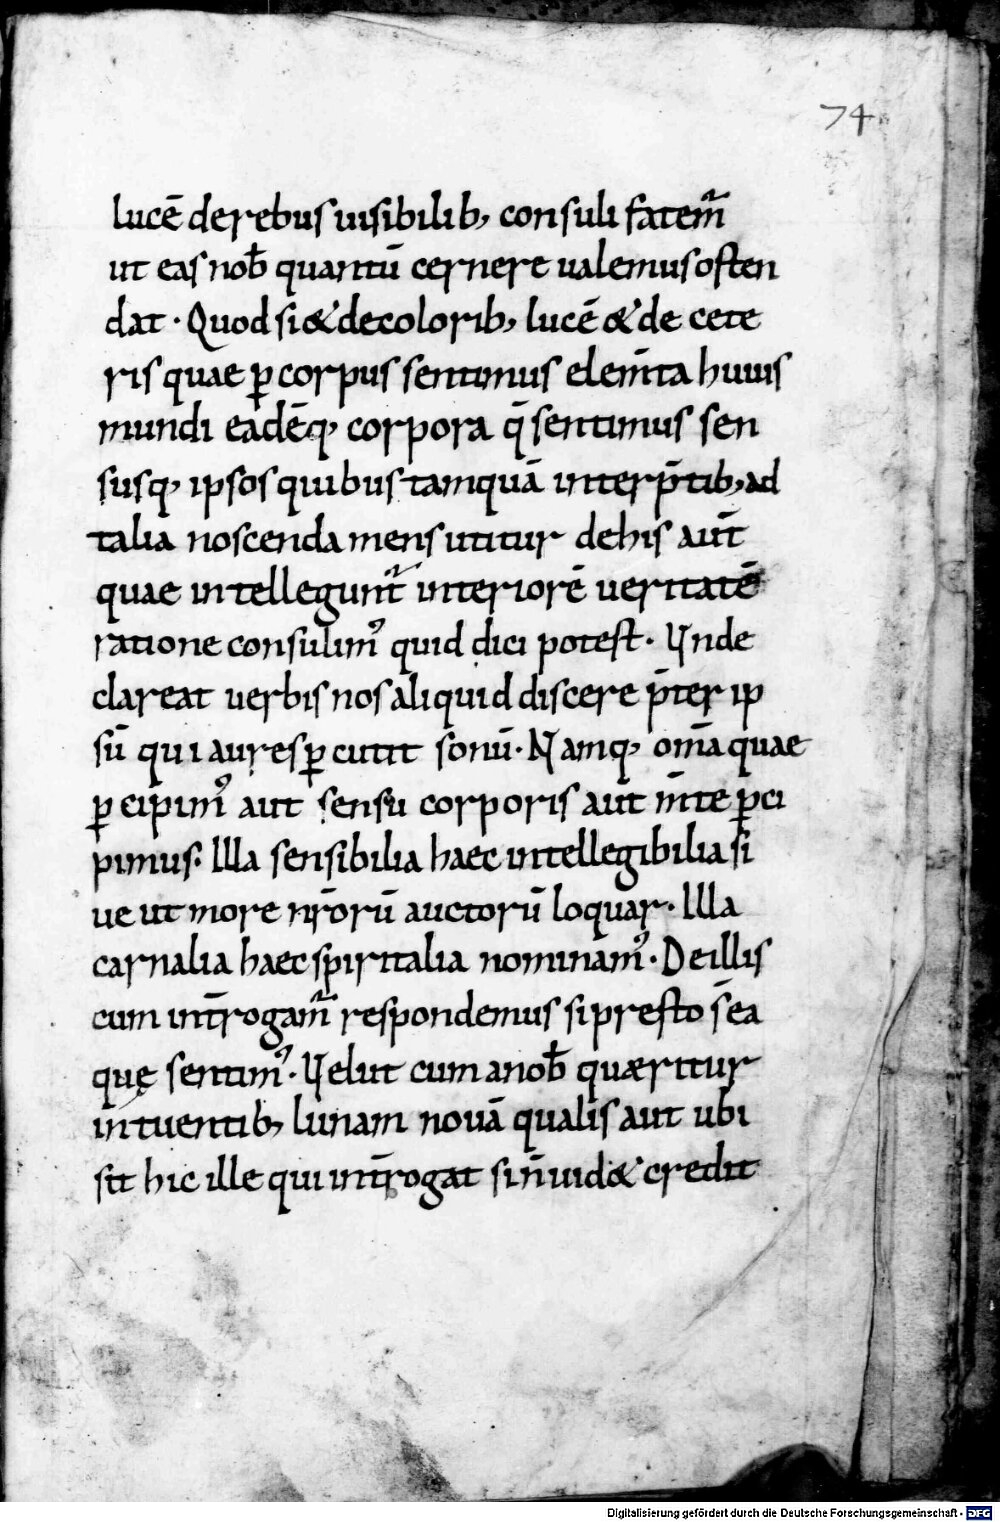 74
lucē de rebus uisibilib; consuli fatem̃
ut eas nob̄ quantū cernere ualemus osten
dat · Quod si & de colorib; lucē & de cete
ris quae ꝑ corpus sentimus elem̄ta huius
mundi eadēq; corpora q̄ sentimus sen
susq; ipsos quibus tamquā interp̄tib; ad
talia noscenda mens utitur de his aut̄
quae intellegunt̃ interiorē ueritatē
ratione consulim᾿ quid dici potest · Unde
clareat uerbis nos aliquid discere p̄ter ip
sū qui aures ꝑcutit sonū · Namq; om̄a quae
ꝑcipim᾿ aut sensu corporis aut m̄te ꝑci
pimus · Illa sensibilia haec intellegibilia si
ue ut more nr̄orū auctorū loquar · Illa
carnalia haec spiritalia nominam᾿ · De illis
cum int̄rogam̃ respondemus si presto s̄ ea
quę sentim᾿ · Uelut cum a nob̄ quæritur
intuentib; lunam nouā qualis aut ubi
sit hic ille qui int̄rogat si n̄ uid& credit
Digitalisierung gefördert durch die Deutsche Forschungsgemeinschaft - DFG